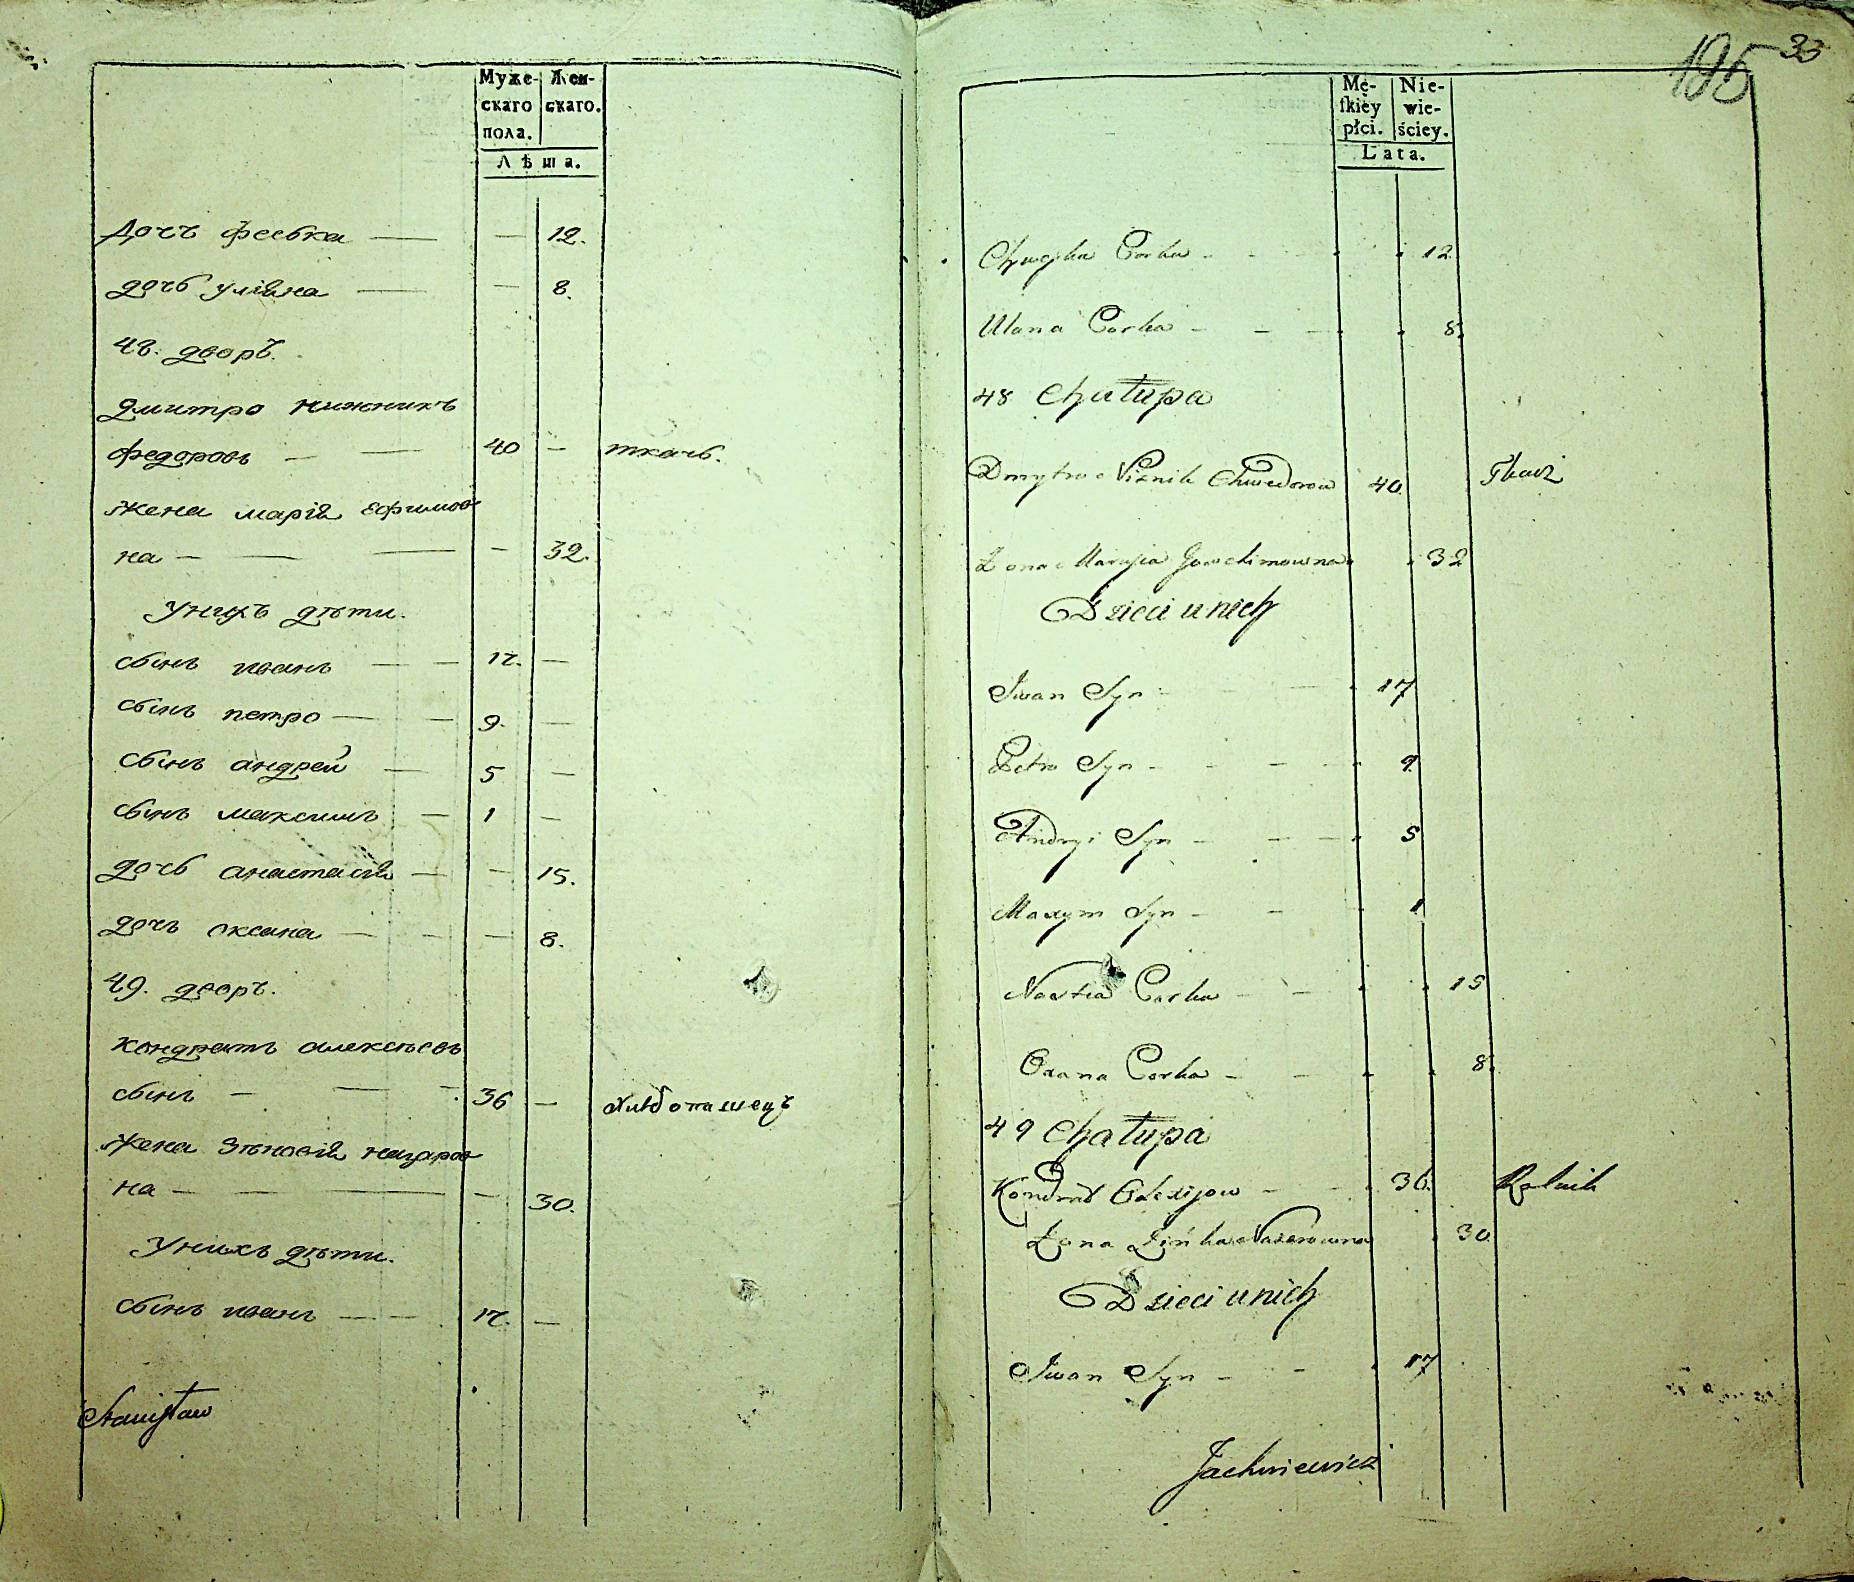 195 33
Муже- Жен-
скаго скаго.
пола.
Лѣта.
Дочъ Фесбка — — 12.
дочь улiяна — — 8.
48. дворъ.
Дмитро Нижникъ
Федоровъ — — 40 — ткачь.
Жена Марiя Ефимов
на — — — — 32.
У нихъ дѣти.
сынъ иванъ — — 17. —
сынъ петро — — 9. —
сынъ андрей — 5 —
сынъ максимъ — 1 —
дочь анастасiя — — 15.
дочъ оксана — — — 8.
49. дворъ.
Кондратъ Алексѣевъ
сынъ — — 36 — хлѣбопашецъ
Жена Зѣновiя Назаров
на — — — — 30.
У нихъ дѣти.
сынъ иванъ — — 17. —
Stanisław
Mę- Nie-
ſkiey wie-
płci. ściey.
Lata.
Chwejka Corka - - - 12
Ulana Corka - - - 8.
48 Chałupa
Dmytro Niznik Chwedorow 40. Tkacz
Zona Marysia Jowchimowna 32
Dzieci u nich
Iwan Syn - - 17
Petro Syn - - - 9.
Andryi Syn - - - 5
Maxym Syn - - - 1
Nastia Corka - - 15
Oxana Corka - - 8.
49 Chałupa
Kondrat Olexijow - - 36. Rolnik
Zona Zińka Nazarowna 30.
Dzieci u nich
Iwan Syn - - 17
Jachniewicz